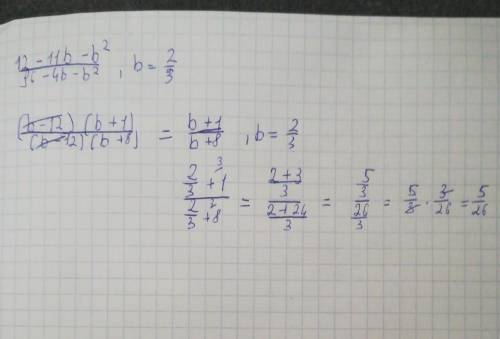 (12 - 11b - b²)/(96 - 4b - b²), b = 2/3
((b-12)(b+1))/((b-12)(b+8)) = (b+1)/(b+8), b = 2/3
(2/3 + 1)/(2/3 + 8) = ((2+3)/3)/((2+24)/3) = (5/3)/(26/3) = 5/3 · 3/26 = 5/26